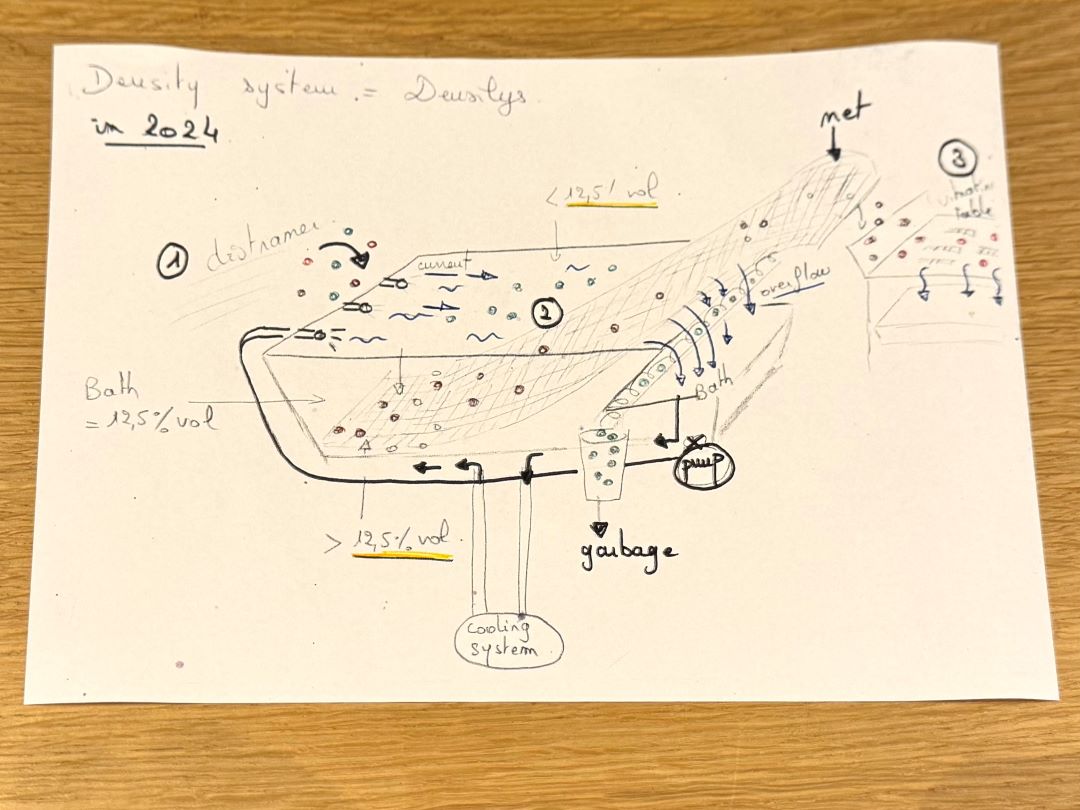 Density system = Densilys
in 2024
net
3
< 12,5% vol
table
1
current
2
overflow
Bath
= 12,5% vol
Bath
pump
> 12,5% vol
garbage
cooling
system